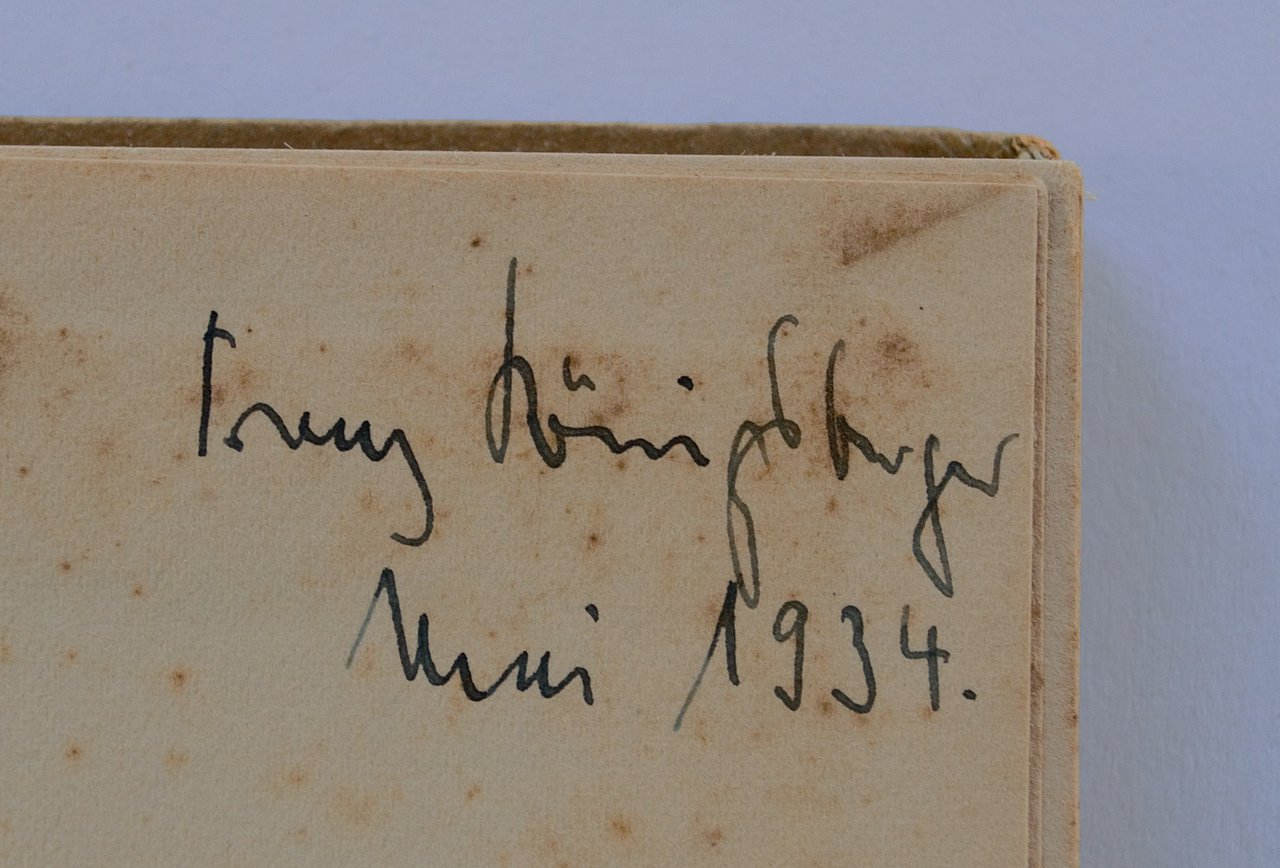 Franz Königsberger
Mai 1934.